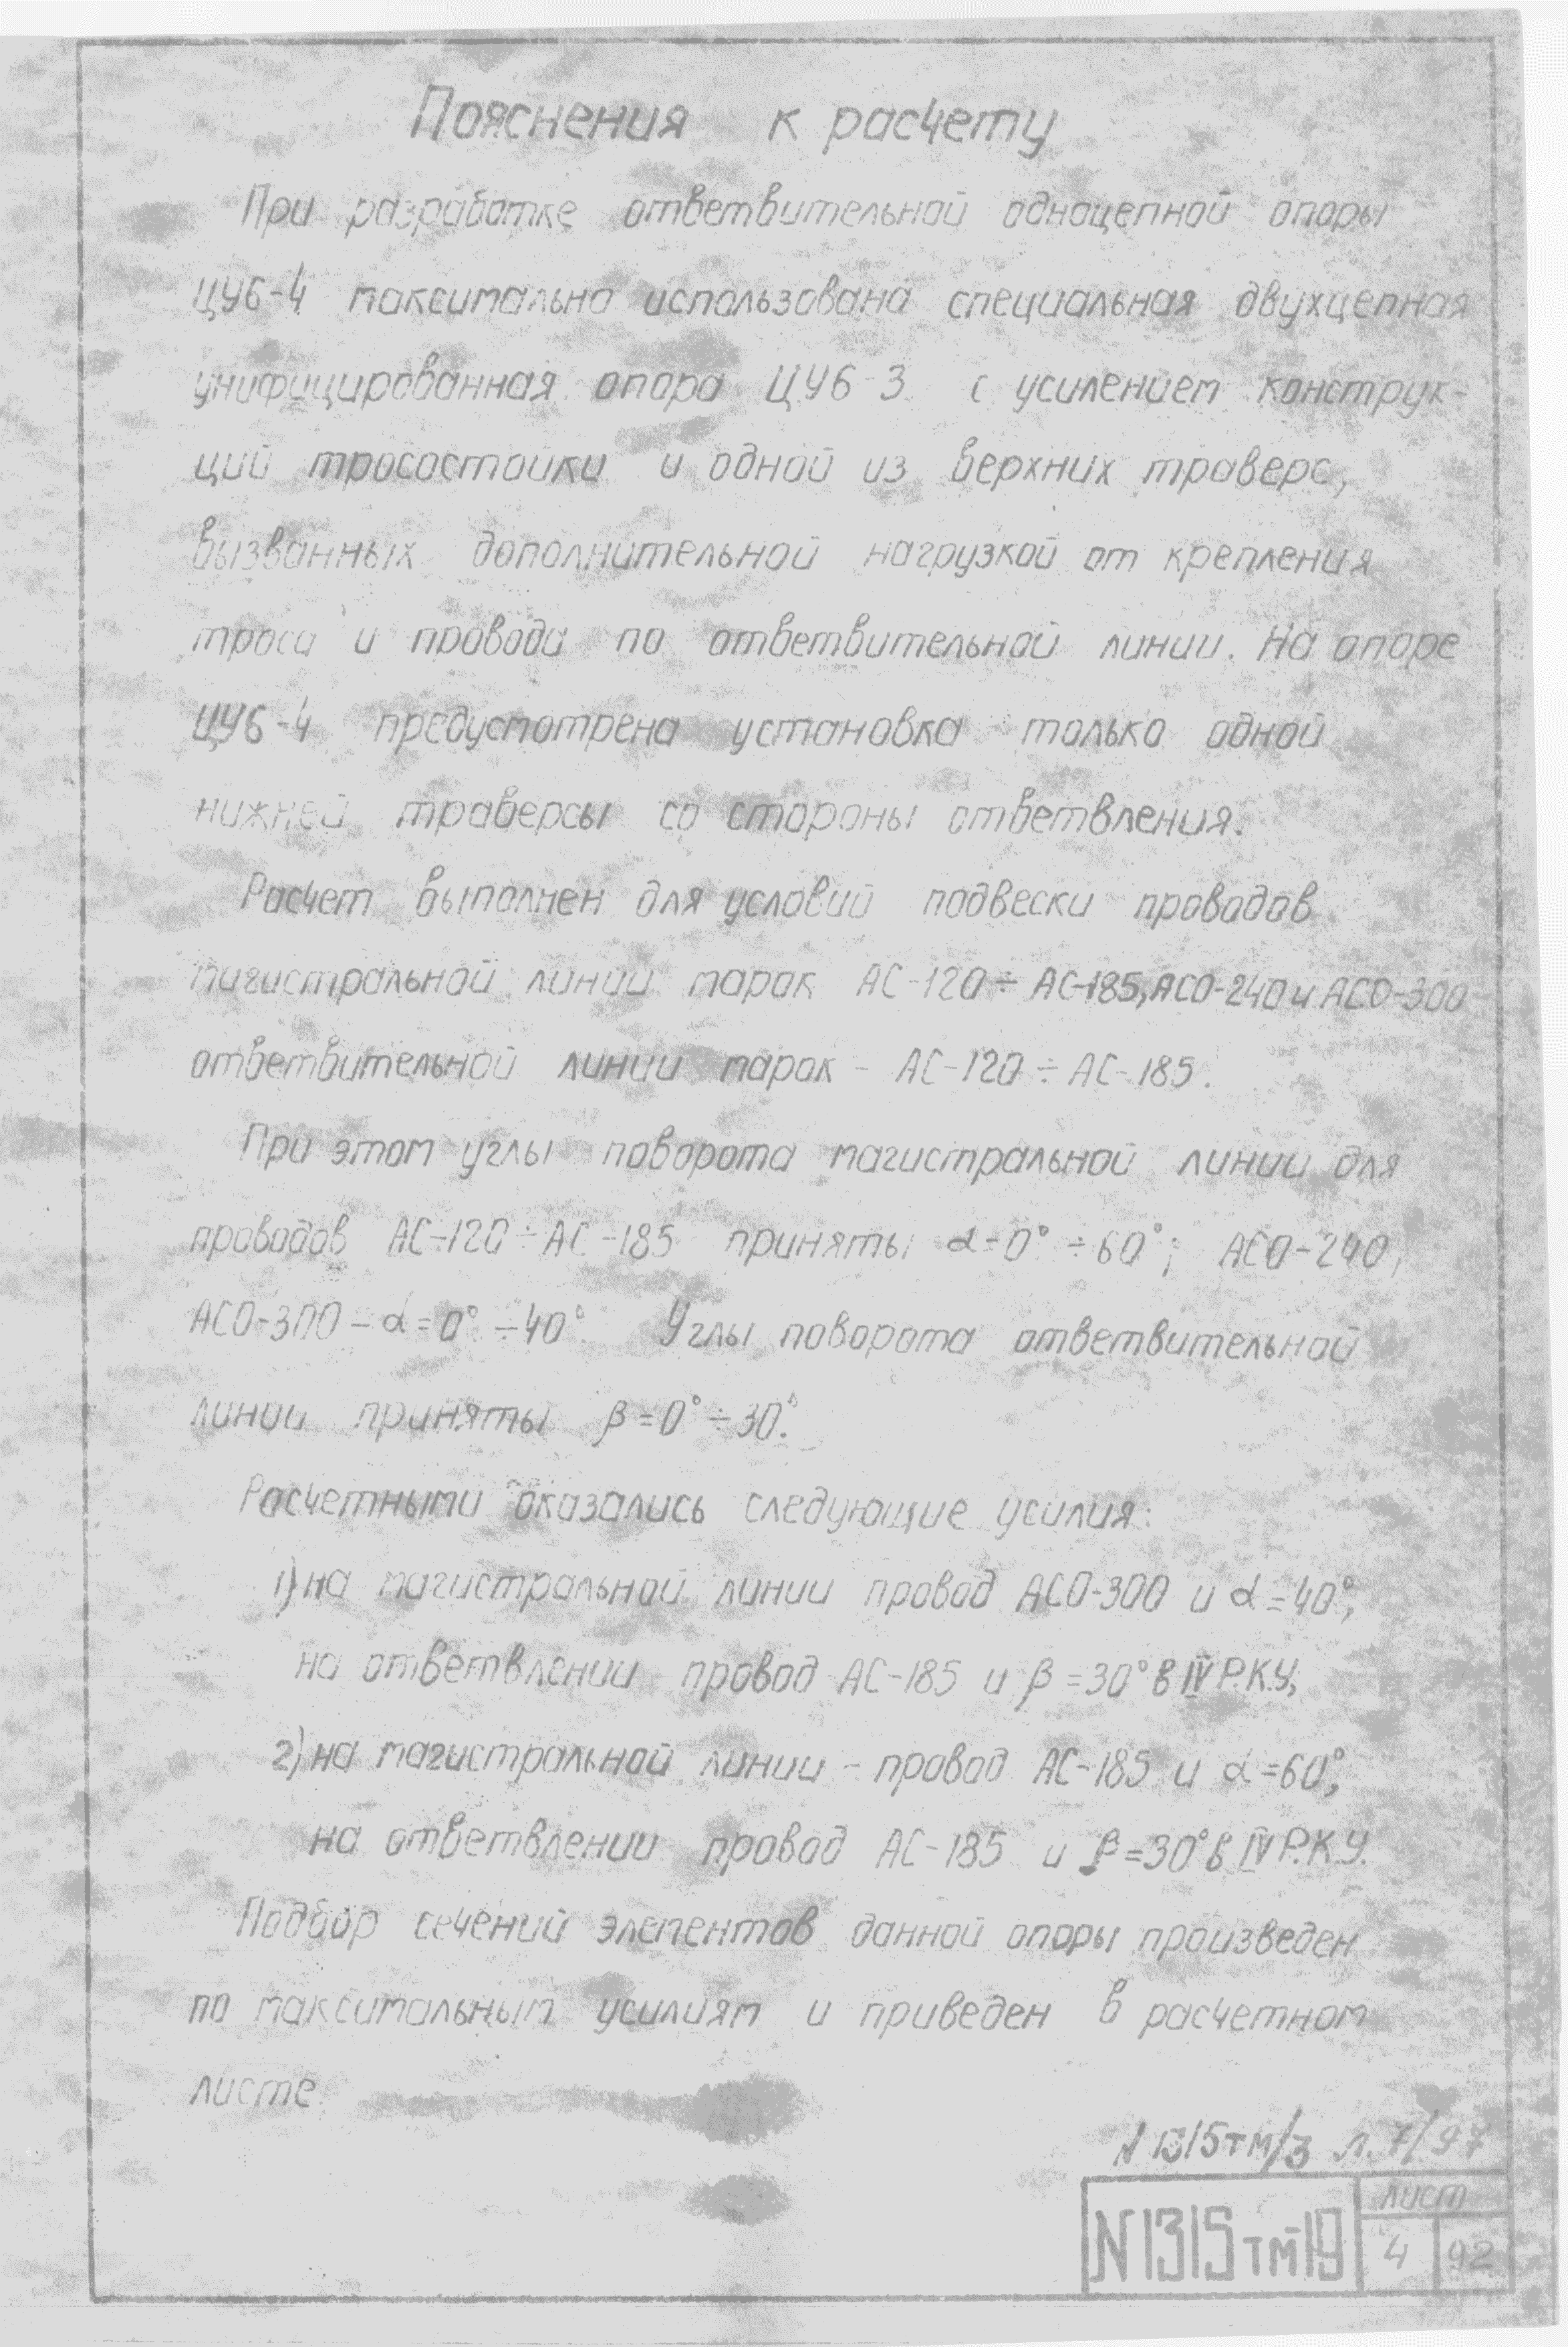 Пояснения к расчету
При разработке ответвительной одноцепной опоры
ЦУ6-4 максимально использована специальная двухцепная
унифицированная опора ЦУ6-3 с усилением конструк-
ций тросостойки и одной из верхних траверс,
вызванных дополнительной нагрузкой от крепления
троса и провода по ответвительной линии. На опоре
ЦУ6-4 предусмотрена установка только одной
нижней траверсы со стороны ответвления.
Расчет выполнен для условий подвески проводов
магистральной линии марок АС-120÷АС-185, АСО-240 и АСО-300
ответвительной линии марок - АС-120÷АС-185.
При этом углы поворота магистральной линии для
проводов АС-120÷АС-185 приняты α=0°÷60°; АСО-240,
АСО-300 - α=0°÷40°. Углы поворота ответвительной
линии приняты β=0°÷30°.
Расчетными оказались следующие усилия:
1) на магистральной линии провод АСО-300 и α=40°,
на ответвлении провод АС-185 и β=30° в IV Р.К.У,
2) на магистральной линии - провод АС-185 и α=60°,
на ответвлении провод АС-185 и β=30° в IV Р.К.У.
Подбор сечений элементов данной опоры произведен
по максимальным усилиям и приведен в расчетном
листе.
N 1315тм/3 л. 7/97
N1315тм-19
лист
4 92